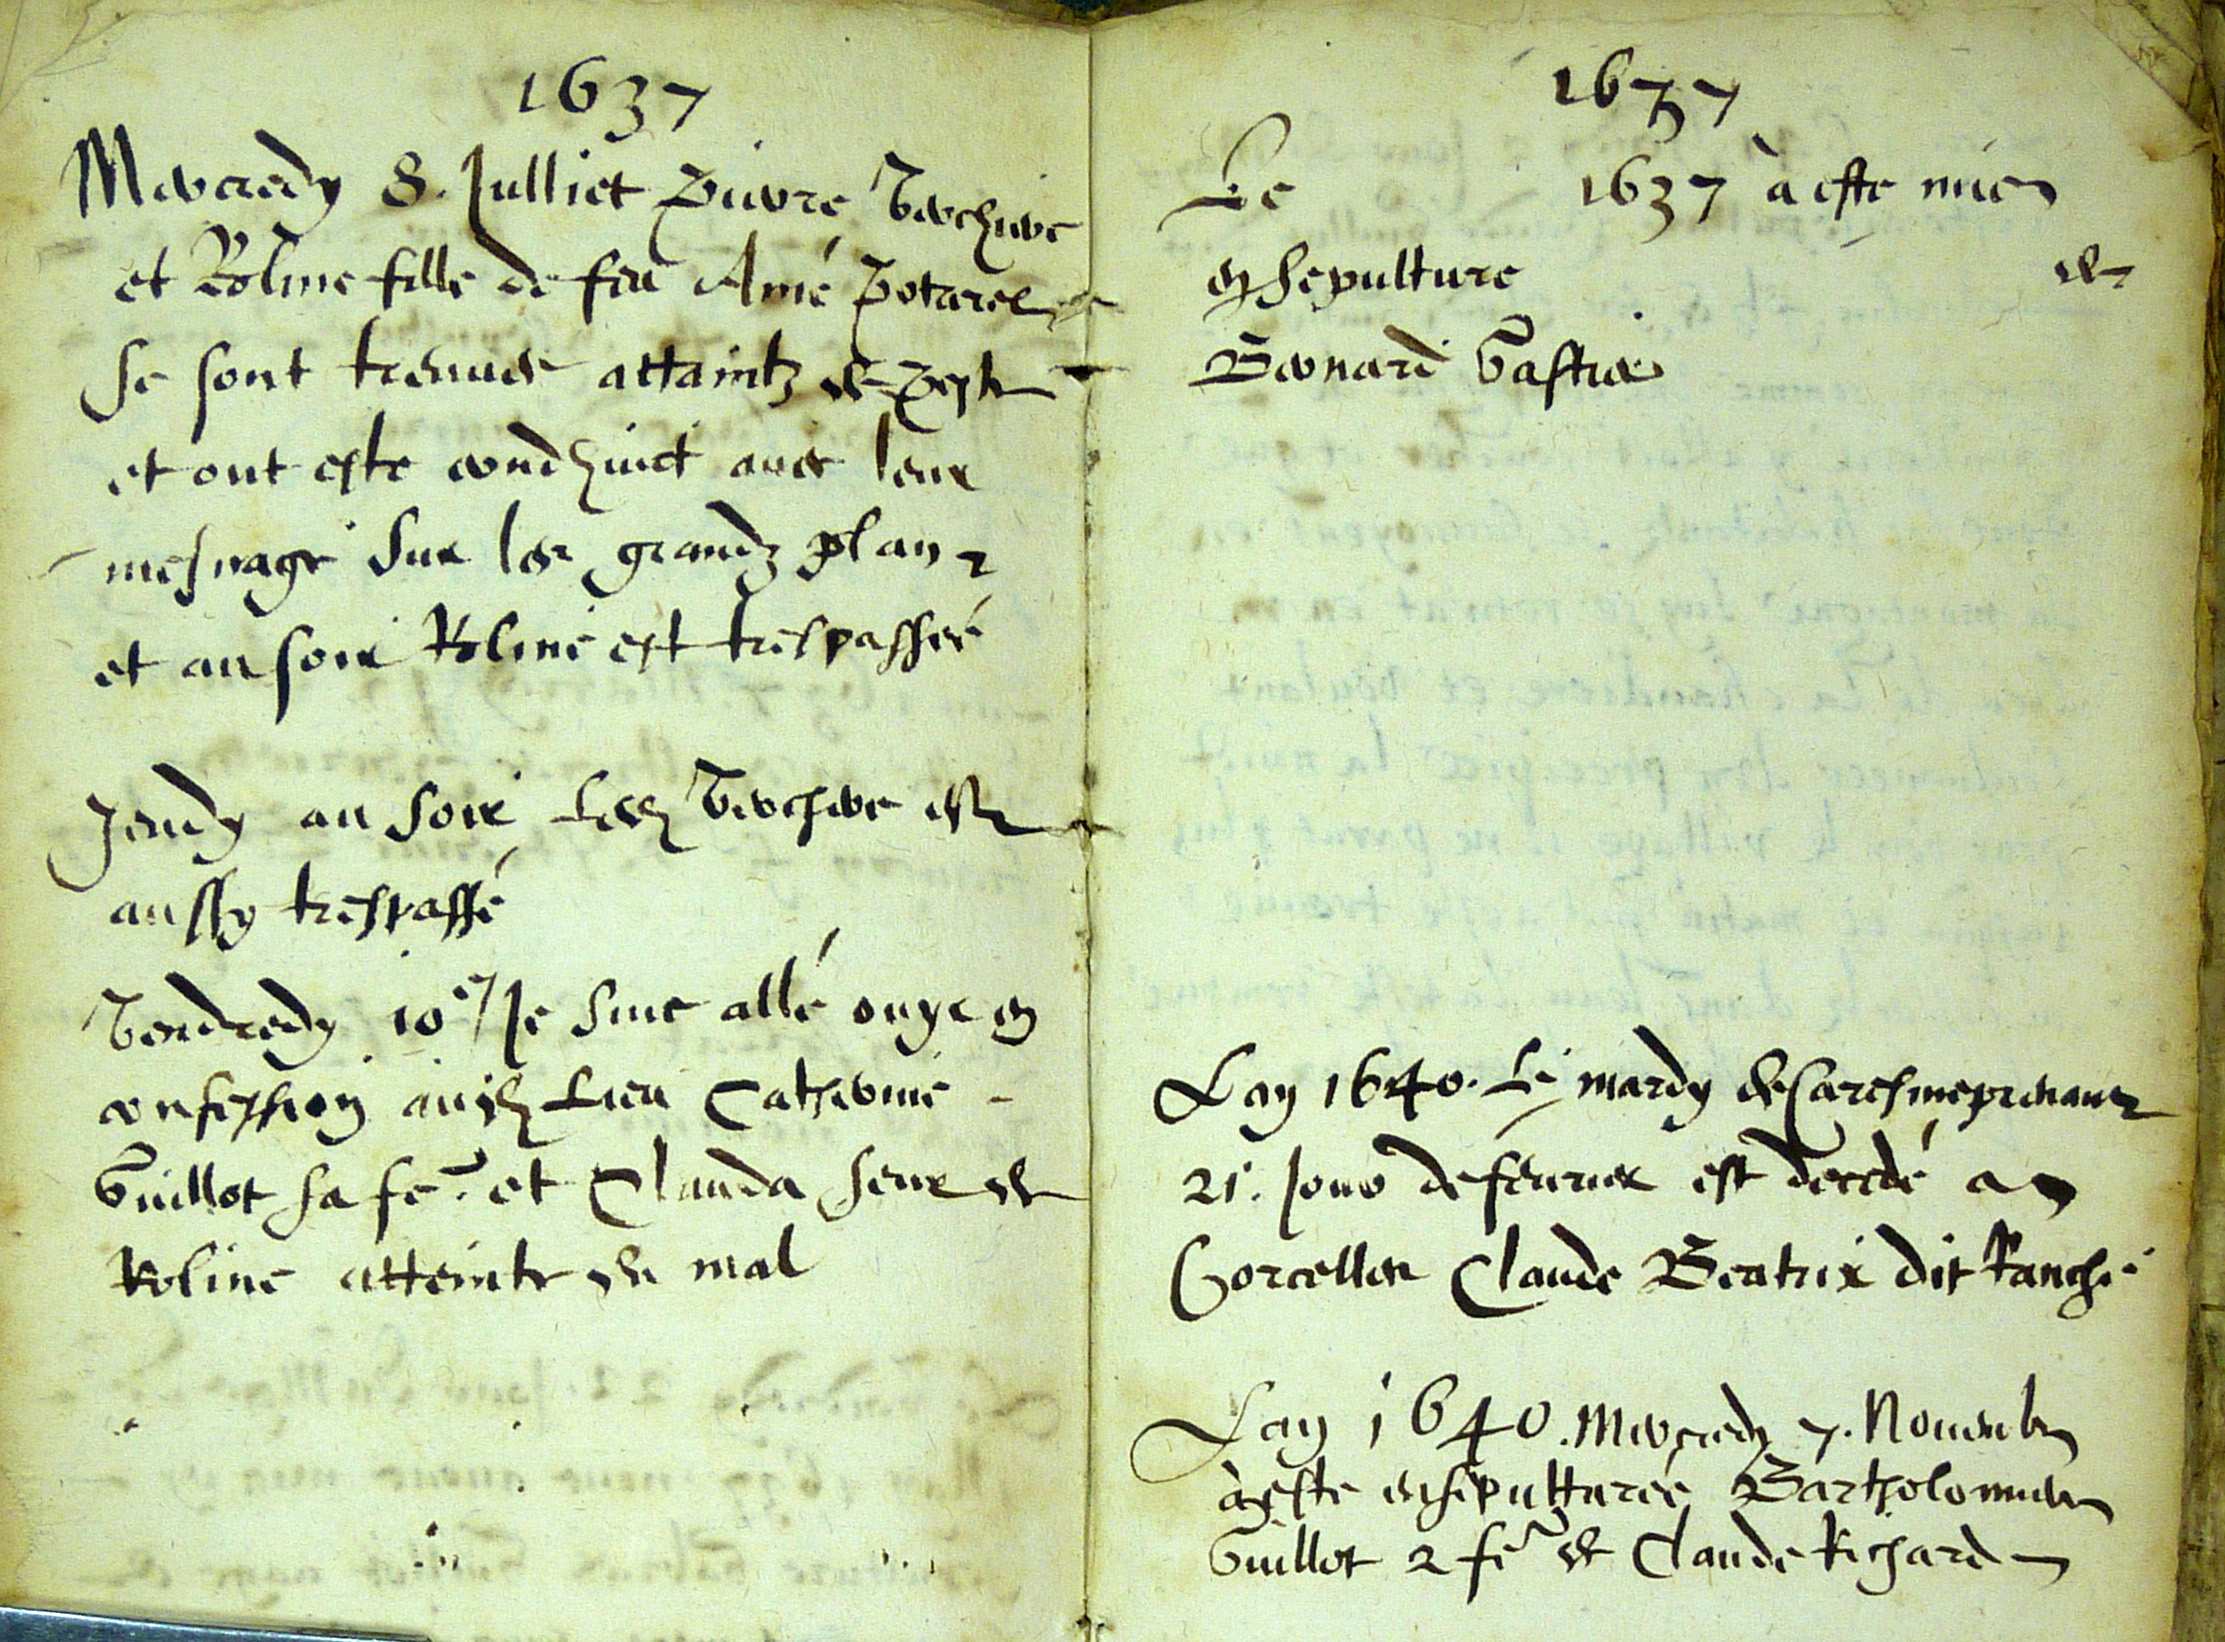 1637
Mercredy 8. Julliet Pierre Vercherre
et Roline fille de feu Amé Potarel
se sont treuues attaintz de peste
et ont este conduict auec leur
mesnage sur les grandz plans
et au soir Roline est trespassée
Jeudy au soir led Vercherre est
aussy trespassé
Vendredy 10e Je suis allé ouyr en
confession aud lieu Catherine
Guillot sa fe. et Clauda seur de
Roline atteinte du mal
1637
Le 1637 a este mise
en sepulture de
Bernard Gastier
Lan 1640. Le mardy de Caresmeprenant
21. Jour de feurier est decedé a
Corcelles Claude Beatrix dit Ranché
Lan 1640. Mercredy 7. Nouembre
a este ensepulturée Bartholomie
Guillot 2 fe de Claude Richard